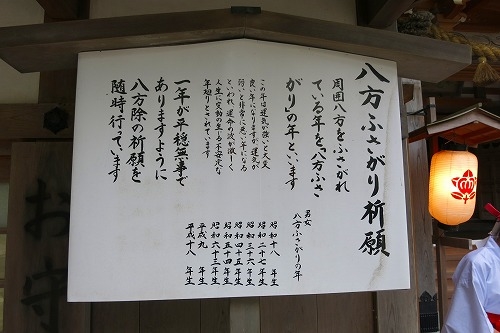 八方ふさがり祈願
周囲八方をふさがれ
ている年を、八方ふさ
がりの年といいます
この年は運気が強いと大変
良い年になりますが、運気が
弱いと非常に悪い年になる
といわれ、運命の波が激しく
人生に変動の生じる不安定な
年廻りとされています
一年が平穏無事で
ありますように
八方除の祈願を
随時行っています
男女
八方ふさがりの年
昭和十八年生
昭和二十七年生
昭和三十六年生
昭和四十五年生
昭和五十四年生
昭和六十三年生
平成九年生
平成十八年生
お守